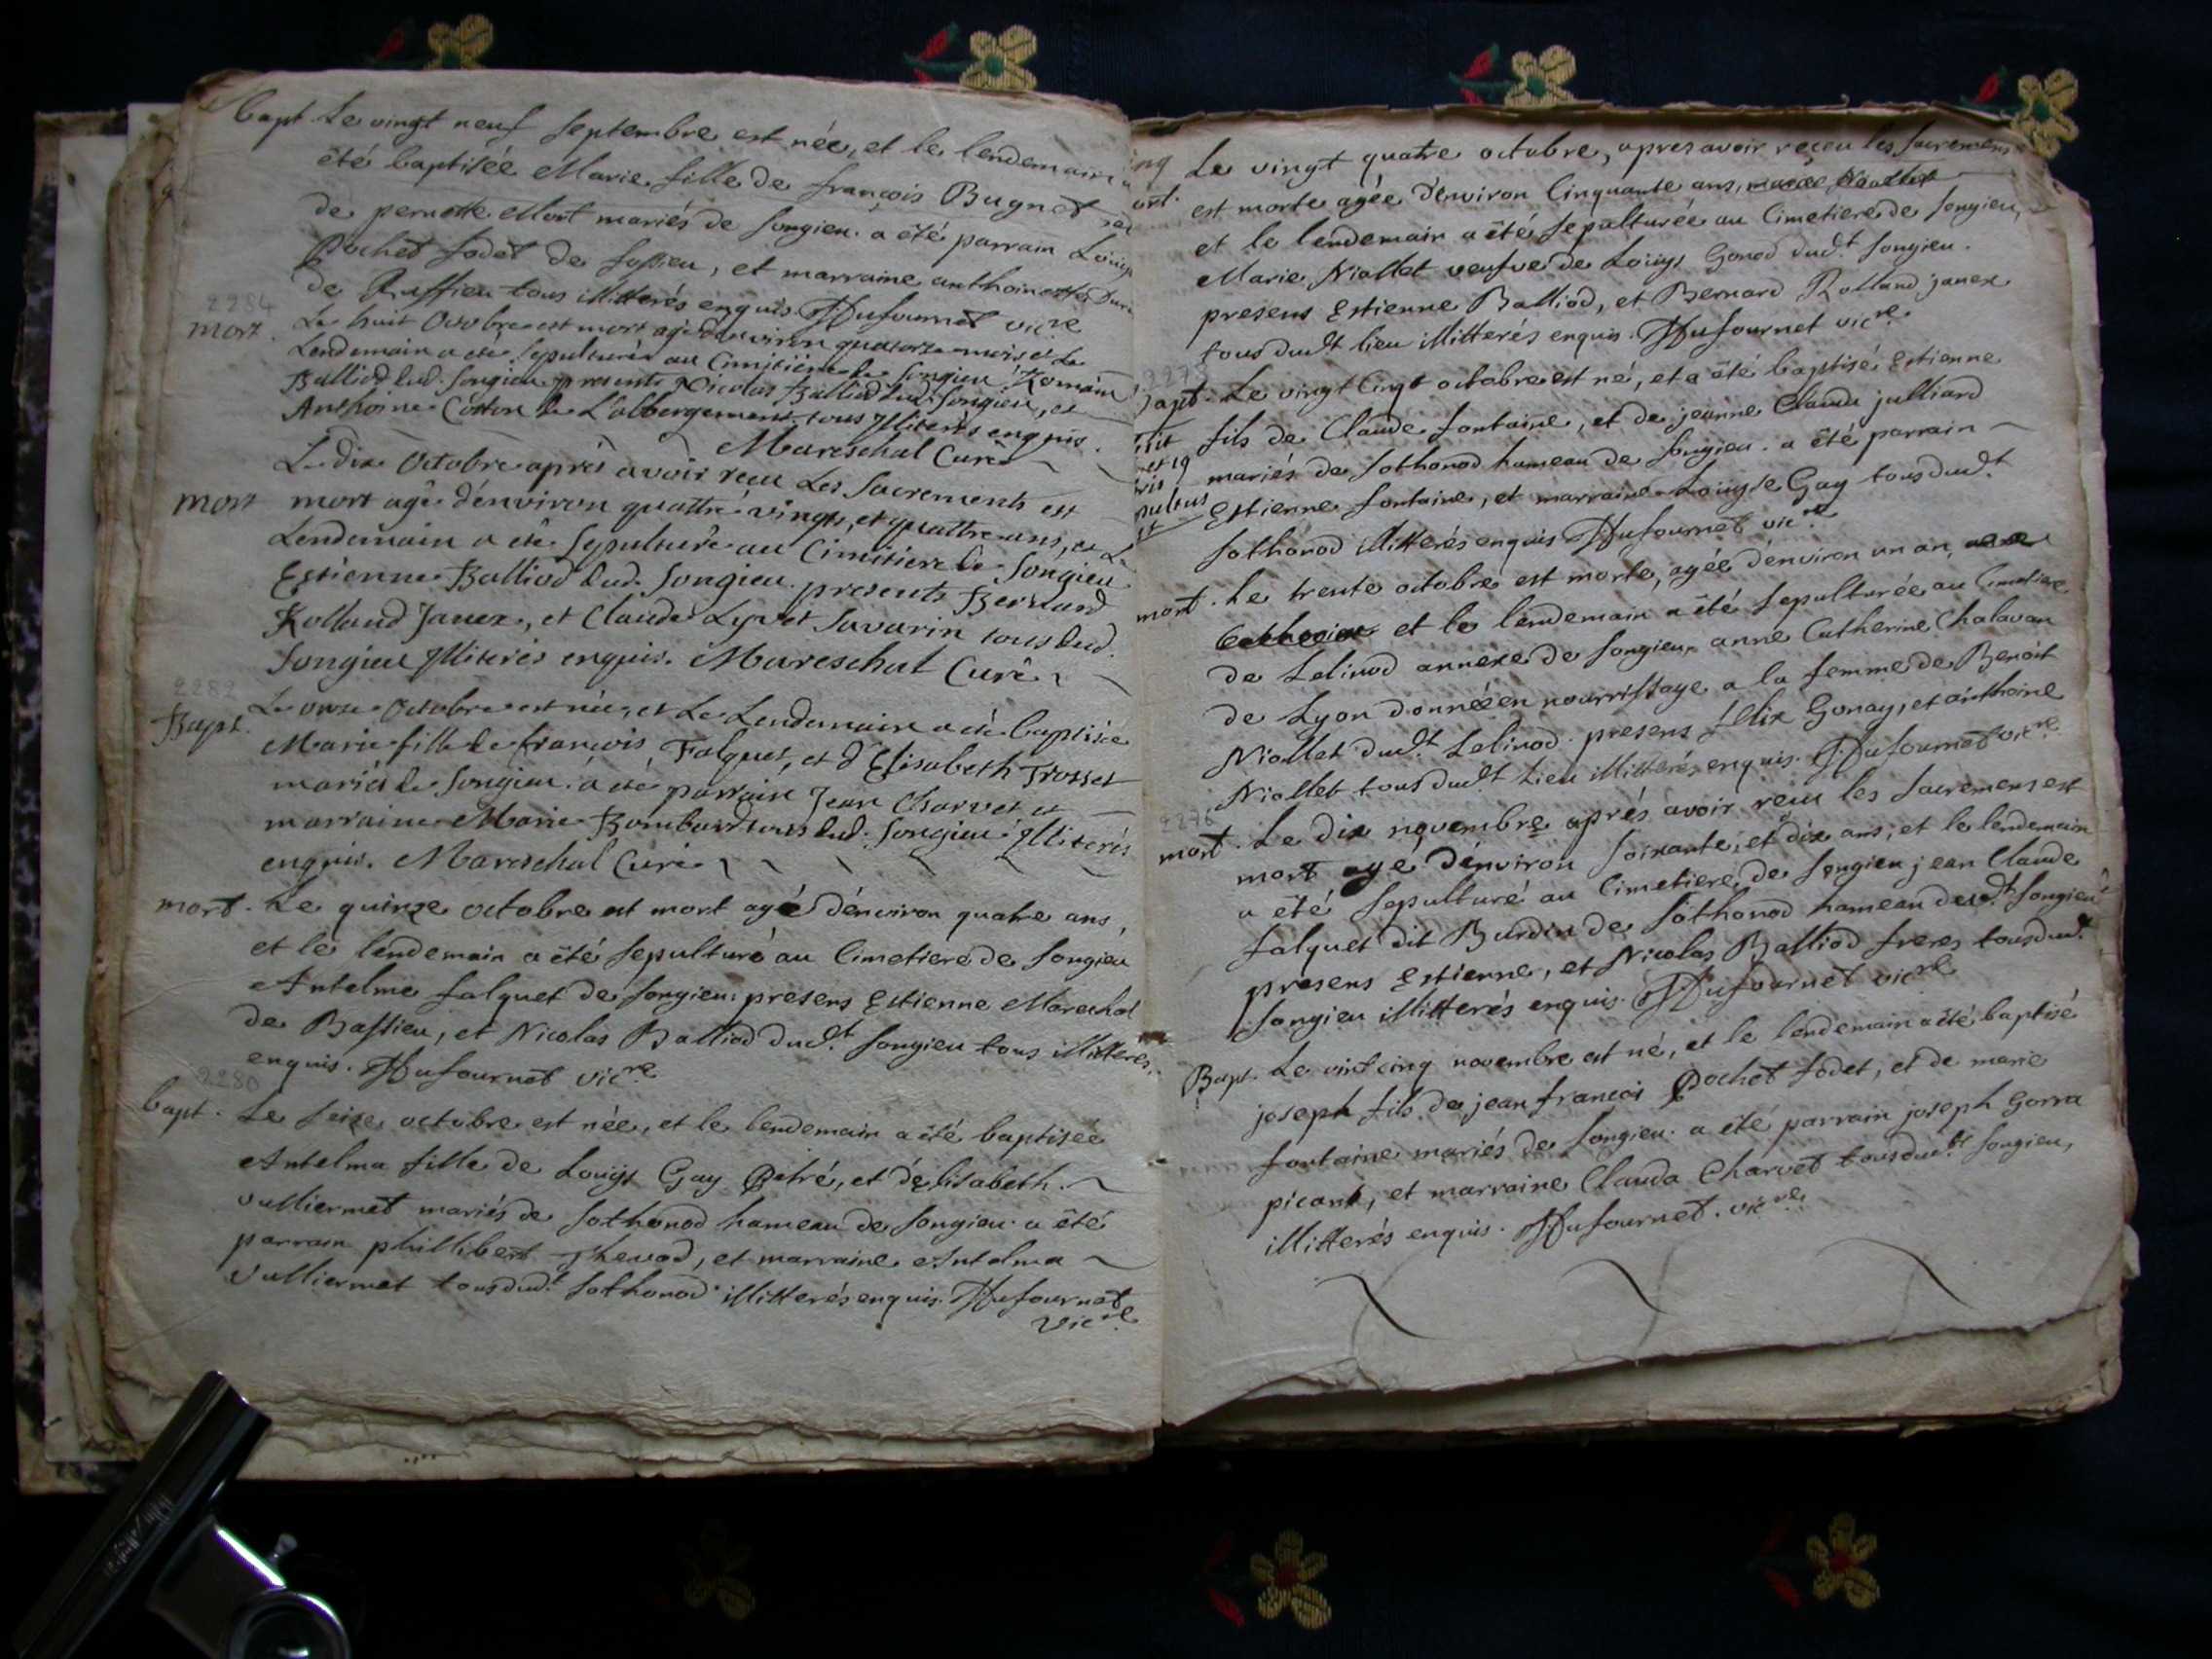 Bapt. Le vingt neuf septembre est née, et le lendemain a
été baptisée Marie fille de françois Bugnet
de pernette Mort mariés de songieu. a été parrain Louys
Pochet fodet de fossieu, et marraine anthoinette
de Ruffieu tous illitterés enquis. Dufournet vicre
2284
mort. Le huit Octobre est mort agé d'environ quatorze mois et Le
Lendemain a eté sepulturé au Cimitiere de Songieu Romain
Balliod dud. Songieu presents Nicolas Balliod dud. Songieu, et
Anthoine Cotton de L'abbergement tous Illiterés enquis.
Mareschal Curé
Le dix Octobre aprés avoir reçu Les Sacrements est
mort mort agé d'environ quattre vingts, et quattre ans, et Le
Lendemain a eté sepulturé au Cimitiere de Songieu
Estienne Balliod dud. Songieu. presents Bernard
Rolland Janex, et Claude Lyvet Savarin tous dud.
Songieu Illiterés enquis. Mareschal Curé
2282
Bapt. Le onze Octobre est née, et Le Lendemain a eté baptisée
Marie fille de françois Falquet, et d'Elisabeth Trosset
mariés de Songieu. a eté parrain Jean Charvet et
marraine Marie Bombard tous dud. Songieu Illiterés
enquis. Mareschal Curé
mort. Le quinze octobre est mort agé d'environ quatre ans,
et le lendemain a été sepulturé au Cimetiere de songieu
Antelme falquet de songieu. presens Estienne Marechal
de Bassieu, et Nicolas Balliod dudt songieu tous illitterés
enquis. Dufournet vicre
2280
bapt. Le seize octobre est née, et le lendemain a été baptisée
Antelma fille de Louys Gay Petré, et d'elisabeth
vulliermet mariés de sothonod hameau de songieu. a été
parrain phillibert Thevod, et marraine Antelma
Vulliermet tous dudt sothonod illitterés enquis. Dufournet
vicre
Le vingt quatre octobre, apres avoir reçeu les sacremens
ort. est morte agée d'environ Cinquante ans,
et le lendemain a été sepulturée au Cimetiere de songieu,
Marie Niollet veufve de Louys Gonod dudt songieu.
presens Estienne Balliod, et Bernard Rolland janex
tous dudt lieu illitterés enquis. Dufournet vicre
bapt. Le vingt Cinq octobre est né, et a été baptisé Estienne
fils de Claude fontaine, et de jeanne Claude julliard
mariés de sothonod hameau de songieu. a été parrain
Estienne fontaine, et marraine Louyse Gay tous dudt
sothonod illitterés enquis Dufournet vicre
mort. Le trente octobre est morte, agée d'environ un an,
et le lendemain a été sepulturée au Cimetiere
de Lelinod annexe de songieu, anne Catherine Chalavan
de Lyon donnée en nourrissage a la femme de Benoit
Niollet dudt Lelinod. presens felix Gonay, et anthoine
Niollet tous dudt Lieu illitterés enquis. Dufournet vicre
2276
mort. Le dix novembre aprés avoir reçu les sacremens est
mort agé d'environ soixante, et dix ans, et le lendemain
a été sepulturé au Cimetiere de songieu jean Claude
falquet dit Burdin de sothonod hameau dudt songieu
presens Estienne, et Nicolas Balliod freres tous dudt
songieu illitterés enquis. Dufournet vicre
Bapt. Le vint cinq novembre est né, et le lendemain a été baptisé
joseph fils de jean françois Pochet fodet, et de marie
fontaine mariés de songieu. a été parrain joseph Gorra
picant, et marraine Clauda Charvet tous dudt songieu,
illitterés enquis. Dufournet. vicre